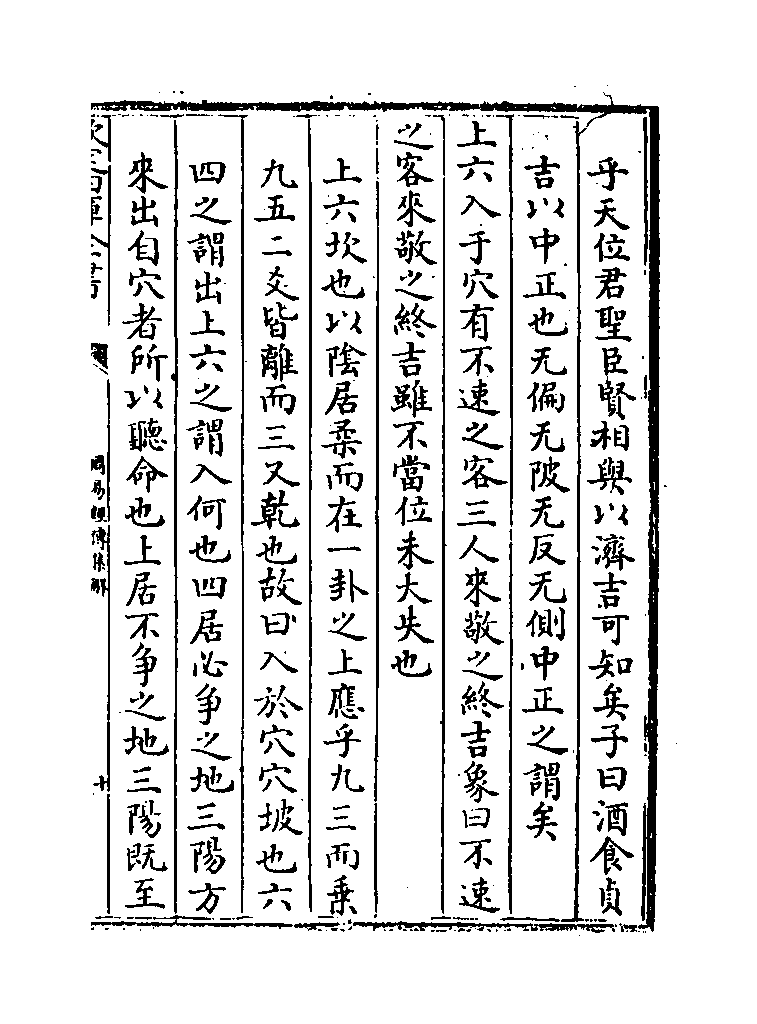 乎天位君聖臣賢相與以濟吉可知矣子曰酒食貞
吉以中正也无偏无陂无反无側中正之謂矣
上六入于穴有不速之客三人來敬之終吉象曰不速
之客來敬之終吉雖不當位未大失也
上六坎也以陰居柔而在一卦之上應乎九三而乗
九五二爻皆離而三又乾也故曰入於穴穴坡也六
四之謂出上六之謂入何也四居必争之地三陽方
來出自穴者所以聽命也上居不争之地三陽既至
欽定四庫全書
周易經傳集解
十